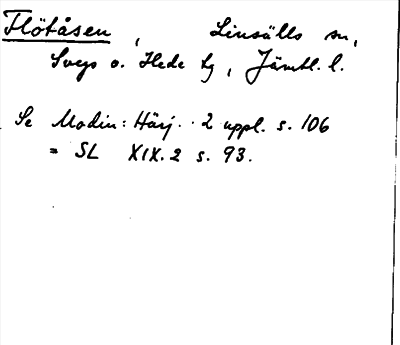 Flötåsen, Linsälls sn,
Svegs o. Hede tg, Jämtl. l.
Se Modin: Härj. 2 uppl. s. 106
= SL XIX.2 s. 93.